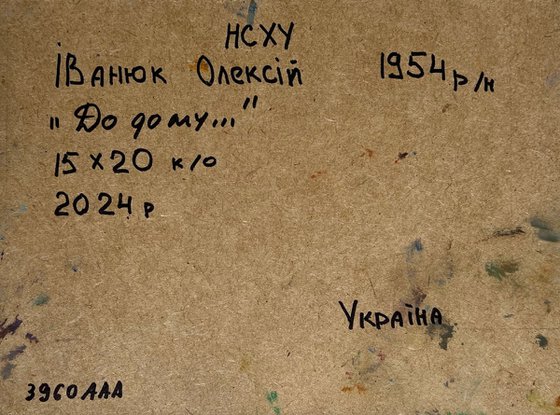 НСХУ
Іванюк Олексій 1954 р/н
„До дому..."
15 х 20 к/о
2024 р
Україна
3960ААА